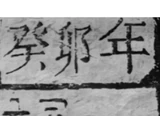 癸卯年